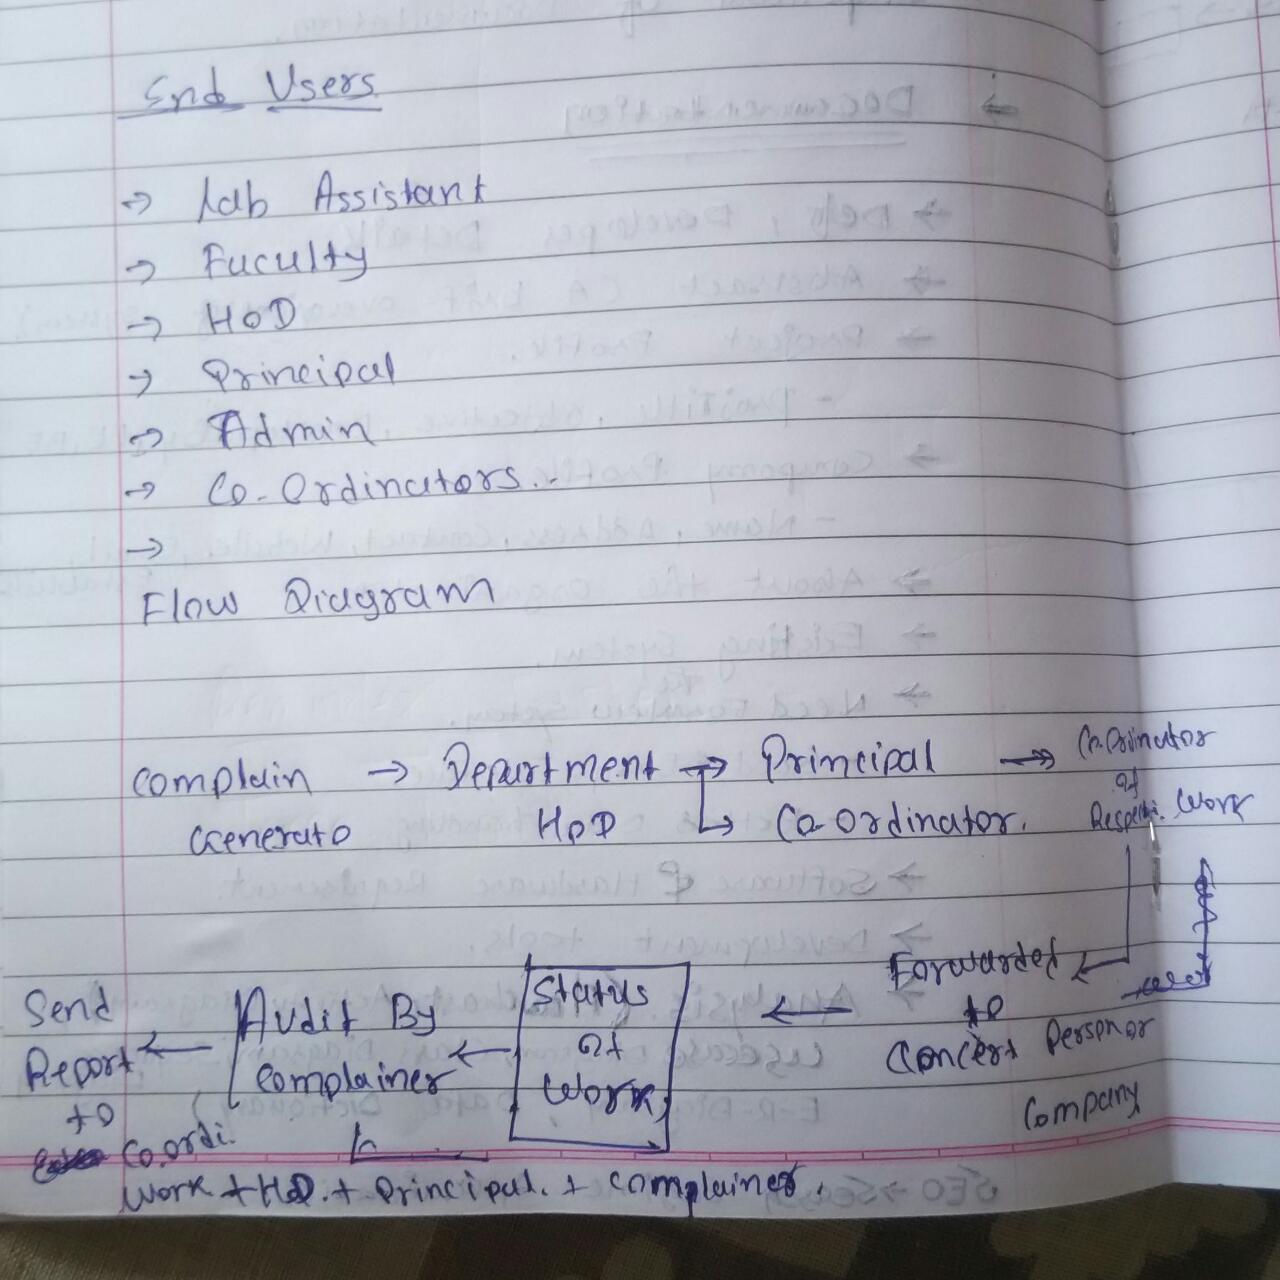 End Users
→ Lab Assistant
→ Fuculty
→ HOD
→ Principal
→ Admin
→ Co-Ordinators..
→
Flow Diagram
Complain → Department → Principal → Co.Ordinator
Generato HOD ↳ Co-Ordinator. of Respecti. Work
Forwarded ←
to
Concert Person or
Company
← Status
of
Work
← Audit By
Complainer
← Send
Report
to
Co.ordi.
Work + HOD. + Principal. + Complainer.